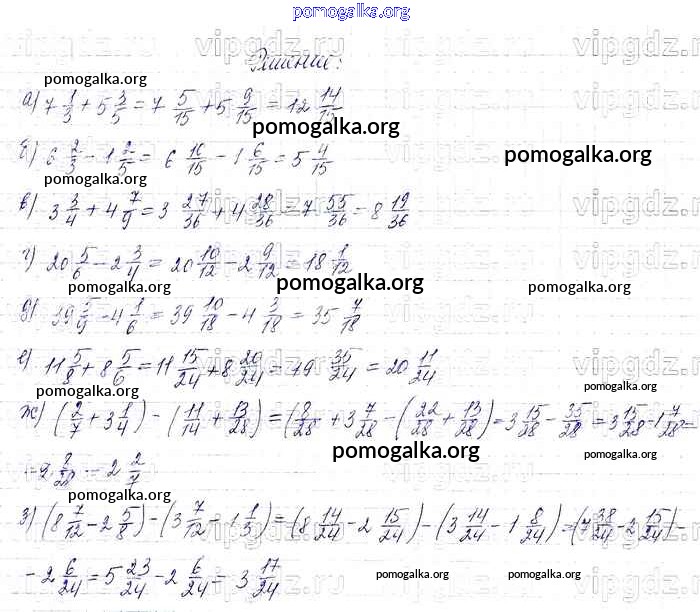 pomogalka.org
vipgdz.ru vipgdz.ru vipgdz.ru
Решение:
pomogalka.org
а) 7 1/3 + 5 3/5 = 7 5/15 + 5 9/15 = 12 14/15
pomogalka.org
б) 6 2/3 - 1 2/5 = 6 10/15 - 1 6/15 = 5 4/15
pomogalka.org
pomogalka.org
в) 3 3/4 + 4 7/9 = 3 27/36 + 4 28/36 = 7 55/36 = 8 19/36
г) 20 5/6 - 2 3/4 = 20 10/12 - 2 9/12 = 18 1/12
pomogalka.org pomogalka.org pomogalka.org
д) 39 5/9 - 4 1/6 = 39 10/18 - 4 3/18 = 35 7/18
е) 11 5/8 + 8 5/6 = 11 15/24 + 8 20/24 = 19 35/24 = 20 11/24
pomogalka.org pomogalka.org
ж) (2/7 + 3 1/4) - (11/14 + 13/28) = (8/28 + 3 7/28 - (22/28 + 13/28) = 3 15/28 - 35/28 = 3 15/28 - 1 7/28 =
pomogalka.org pomogalka.org
= 2 8/28 = 2 2/7
pomogalka.org
з) (8 7/12 - 2 5/8) - (3 7/12 - 1 1/3) = (8 14/24 - 2 15/24) - (3 14/24 - 1 8/24) = (7 38/24 - 2 15/24) -
- 2 6/24 = 5 23/24 - 2 6/24 = 3 17/24
pomogalka.org pomogalka.org